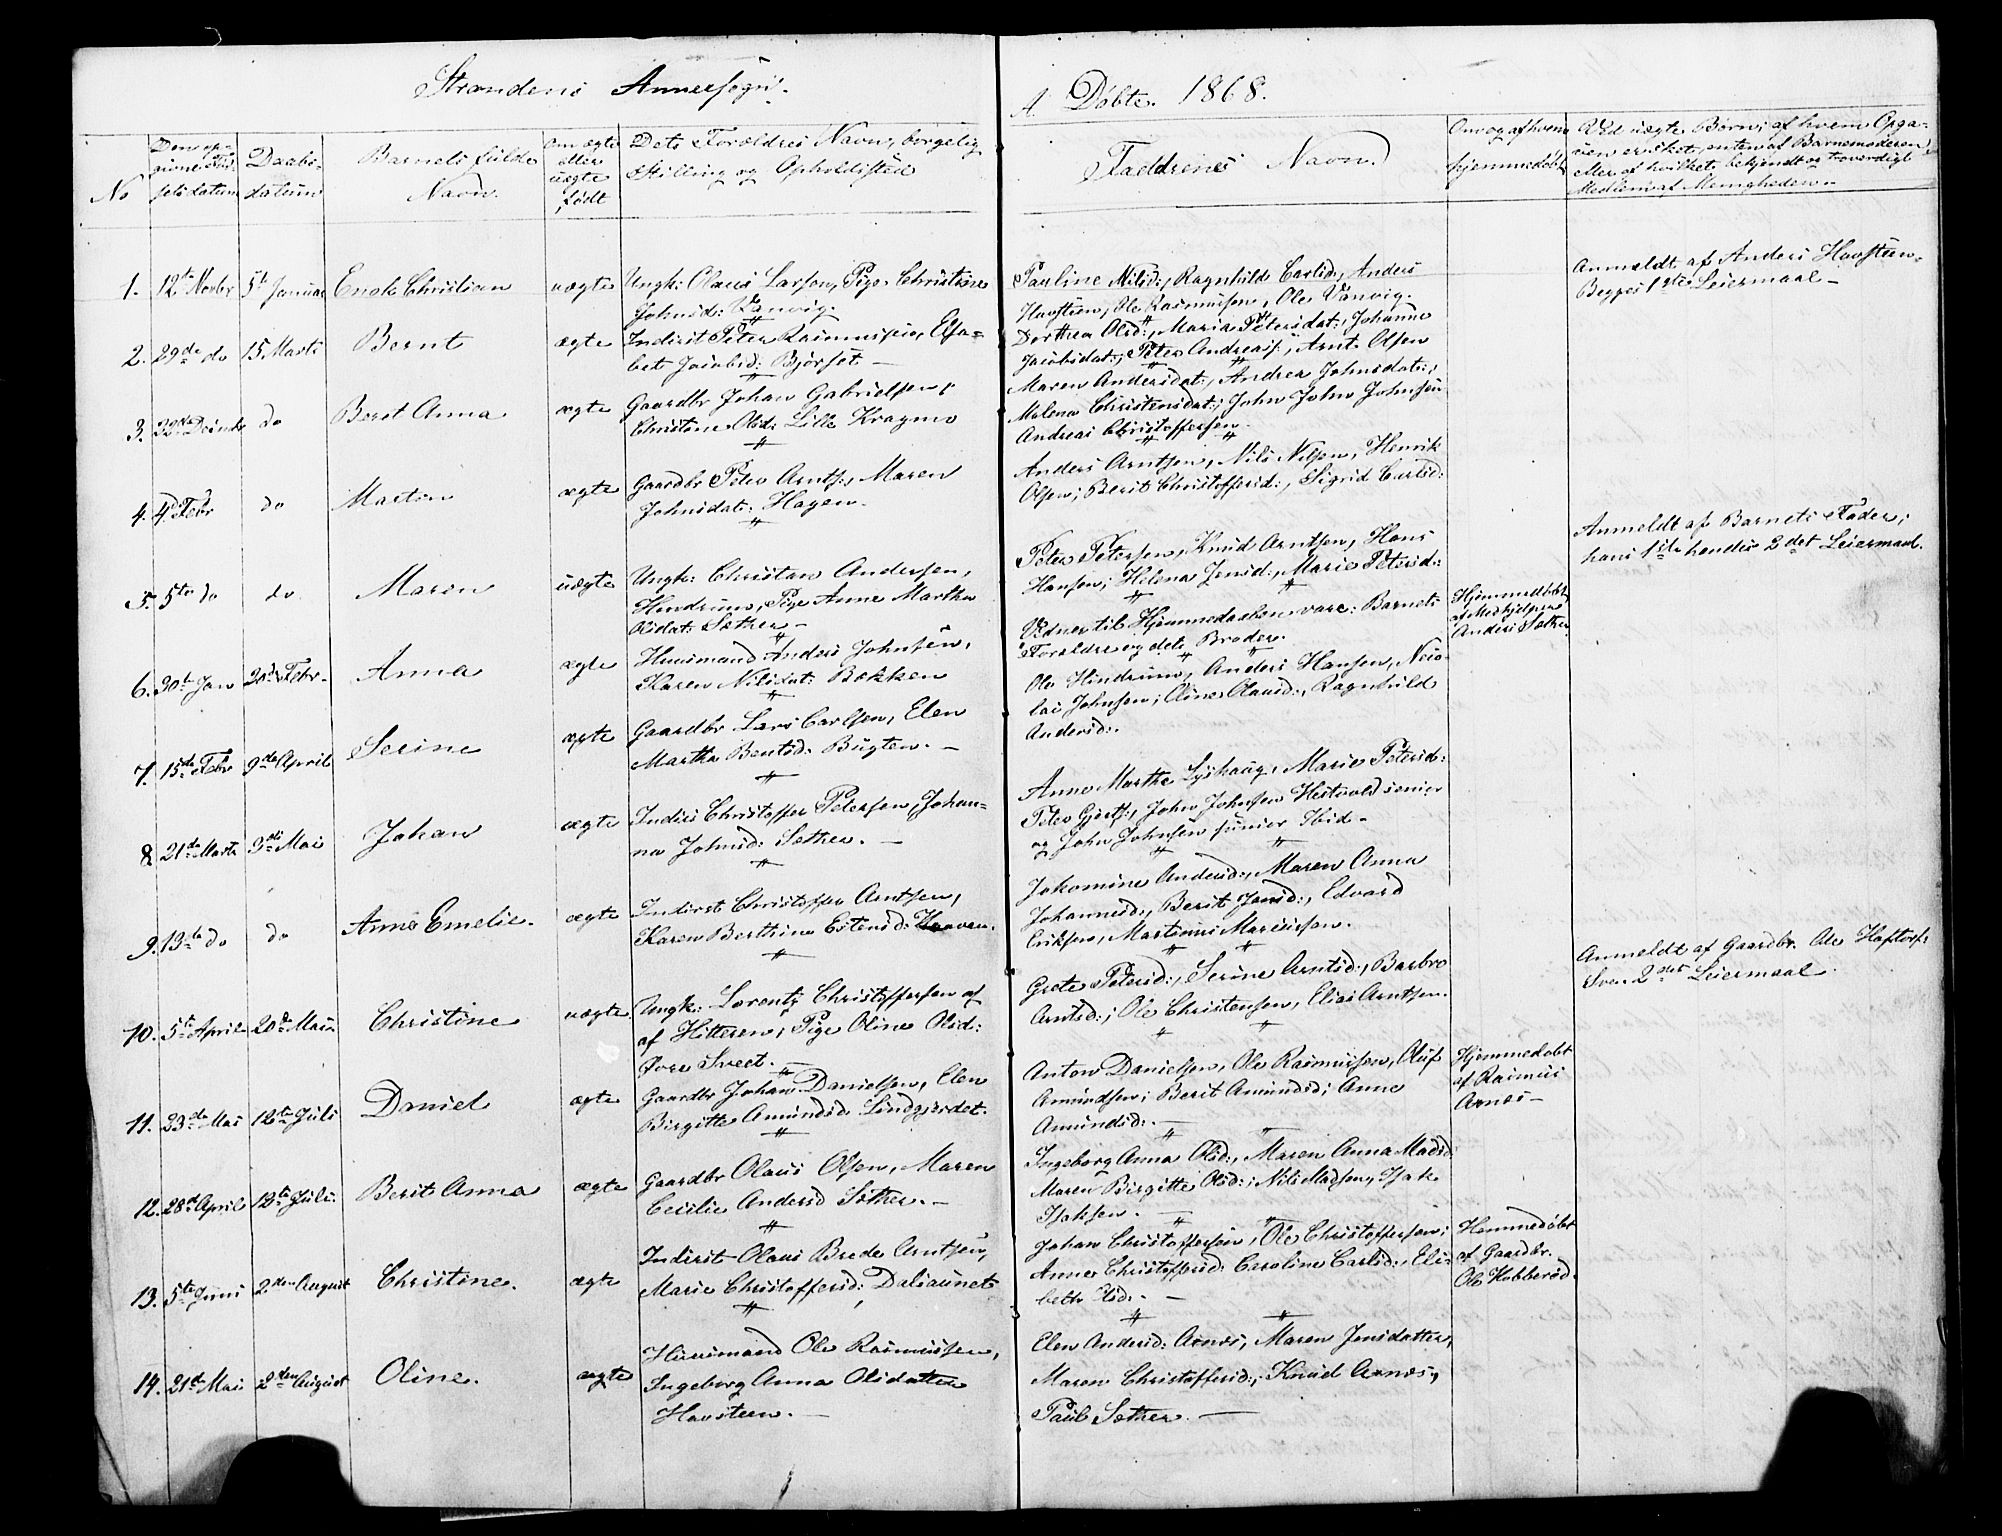 Strandens Annexsogn.
A. Döbte. 1868.
No
Den op-
givne Fød-
selsdatum
Daabs-
datum
Barnets fulde
Navn.
Om ægte
eller
uægte
födt
Dets Forældres Navn, borgelig
Stilling og Opholdssted
Faddrenes Navn.
Om og af hvem
hjemmedöbt
Ved uægte Börn; af hvem Opga-
ven er skeet, enten af Barnemoderen
eller af hvilket bekjendt og troværdigt
Medlem af Menigheden.
1. 12te Novbr 5te Januar Enok Christian uægte Ungk: Olaus Larsen, Pige Christine
Johnsd: Vanvig.
Pauline Nilsd:, Ragnhild Carlsd:, Anders
Havsteen, Ole Rasmussen, Ole Vanvig.
Anmeldt af Anders Havsteen.
Begges 1ste Leiermaal –
2. 29de do 15 Marts Bernt ægte Inderst Peter Rasmussen, Elsa-
bet Jacobsd: Bjørset –
Dorthea Olsd:, Maria Petersdat:, Johanna
Jacobsdat:, Peter Andreass:, Arnt Olsen
3. do Berit Anna ægte Gaardbr Johan Gabrielsen,
Christine Olsd: Lille Kragmo
Maren Andersdat:, Andrea Johnsdat:,
Malena Christensdat:, John John Johnsen
Andreas Christoffersen.
4. 4de Febr do Morten ægte Gaardbr Peter Arnts:, Maren
Johnsdat: Hagen.
Anders Arntsen, Nils Nilsen, Henrik
Olsen; Berit Christoffersd:, Sigrid Carlsd:
5. 5te do do Maren uægte Ungk: Christan Andersen,
Hindrum, Pige Anne Martha
Olsdat: Sæther –
Peter Petersen, Knud Arntsen, Hans
Hansen; Helena Jensd:, Marie Petersd:
Anmeldt af Barnets Fader;
hans 1ste hendes 2det Leiermaal.
6. 30te Jan 20de Febr. Anna ægte Huusmand Anders Johnsen,
Karen Nilsdat: Bakken
Vidner til Hjemmedaaben vare: Barnets
Forældre og dets Broder.
Hjemmedöbt
af Medhjelper
Anders Sæther
7. 15de Febr 9de April Serine ægte Gaardbr Lars Carlsen, Elen
Martha Bentsd: Bugten. –
Ole Hindrum, Anders Hansen, Nico-
lai Johnsen; Oline Olausd:, Ragnhild
Andersd:.
8. 21de Marts 3die Mai Johan ægte Inders Christoffer Petersen, Johan-
na Johnsd: Sæther. –
Anne Marthe Lyshaug, Marie Petersd:
Peter Gjerts:, John Johnsen Hestvold senior
og John Johnsen junior Ibid –
9. 13te do do Anne Emelie. ægte Inderst Christoffer Arntsen,
Karen Berthine Estensd:
Jakomine Andersd:, Maren Anna
Johannesd:, Berit Jensd:, Edvard
Eriksen, Martinus Mariussen.
10. 5te April 20de Mai Christine uægte Ungk: Lorentz Christoffersen af
af Hitteren, Pige Oline Olsd:
Grete Petersd:, Serine Arntsd:, Barbro
Arntsd:; Ole Christensen, Elias Arntsen.
Anmeldt af Gaardbr. Ole
2det Leiermaal.
11. 23de Mai 12te Juli Daniel ægte Gaardbr Johan Danielsen, Elen
Birgitte Amundsd Lindgjerdet.
Anton Danielsen, Ole Rasmussen, Oluf
Amundsen; Berit Amundsd; Anne
Amundsd:. –
Hjemmedobt
af Rasmus
Arnes –
12. 28de April 12te Juli Berit Anna ægte Gaardbr Olaus Olsen, Maren
Cecilie Andersd Sæther. –
Ingeborg Anna Olsd:, Maren Anna Madsd:
Maren Birgitte Olsd:; Nils Madsen, Isak
Isaksen. –
13. 5te Juni 2den August Christine. ægte Inderst Olaus Brede Arntsen,
Marie Christoffersd: Dalsaunet
Johan Christoffersen, Ole Christoffersen;
Anne Christoffersd: Caroline Carlsd:, Eli-
beth –
Hemmedöbt
af Gaardbr.
Ole
14. 21de Mai 2den August Oline. ægte Huusmand Ole Rasmussen,
Ingeborg Anna Olsdatter
Havsteen. –
Elen Andersd: Arnes, Maren Jensdatter,
Maren Christoffersd:, Knud Arnes,
Paul Sæther. –